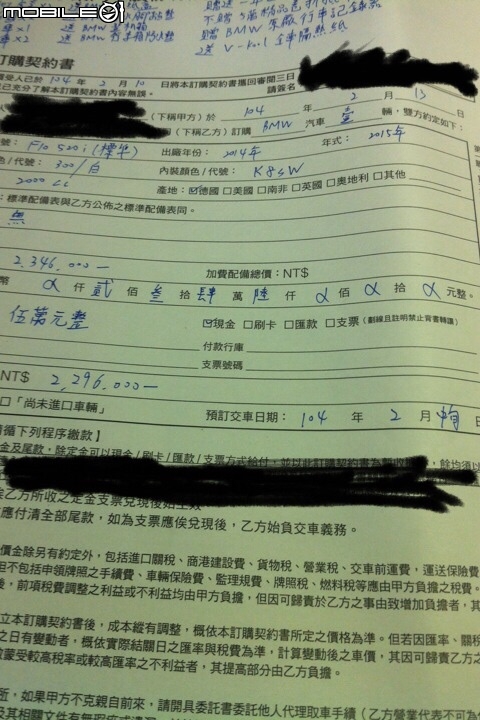 mobile01
x1 送 BMW
x2 送 BMW
不贈送
贈 BMW 原廠行車記錄器
送 V-kool 全車隔熱紙
訂購契約書
受人已於 104 年 2 月 10 日將本訂購契約書攜回審閱三日
已充分了解本訂購契約內容無誤。 請簽名
(下稱甲方) 於 104 年 2 月 13 日
(下稱乙方) 訂購 BMW 汽車 壹 輛，雙方約定如下：
號： F10 520i (標準) 出廠年份： 2014年 年式： 2015年
色/代號： 300/白 內裝顏色/代號： K8SW
2000 cc 產地：☑德國 □美國 □南非 □英國 □奧地利 □其他
：標準配備表與乙方公佈之標準配備表同。
無
2,346,000- 加費配備總價：NT$
幣 α 仟 貳 佰 叁 拾 肆 萬 陸 仟 α 佰 α 拾 α 元整。
伍萬元整 ☑現金 □刷卡 □匯款 □支票 (劃線且註明禁止背書轉讓)
付款行庫
支票號碼
NT$ 2,296,000-
口「尚未進口車輛」 預訂交車日期： 104 年 2 月 中旬 日
循下列程序繳款】
金及尾款，除定金可以現金/刷卡/匯款/支票方式給付，並以此訂購契約書為
乙方所收之定金支票兌現後始生效
應付清全部尾款，如為支票應俟兌現後，乙方始負交車義務。
價金除另有約定外，包括進口關稅、商港建設費、貨物稅、營業稅、交車前運費，運送保險費
但不包括申領牌照之手續費、車輛保險費、監理規費、牌照稅、燃料稅等應由甲方負擔之稅費。
後，前項稅費調整之利益或不利益均由甲方負擔，但因可歸責於乙方之事由致增加負擔者，其
立本訂購契約書後，成本縱有調整，概依本訂購契約書所定之價格為準。但若因匯率、關稅
之日有變動者，概依實際結關日之匯率與稅費為準，計算變動後之車價，其因可歸責乙方之
致蒙受較高稅率或較高匯率之不利益者，其提高部分由乙方負擔。
所，如果甲方不克親自前來，請開具委託書委託他人代理取車手續（乙方營業代表不可為